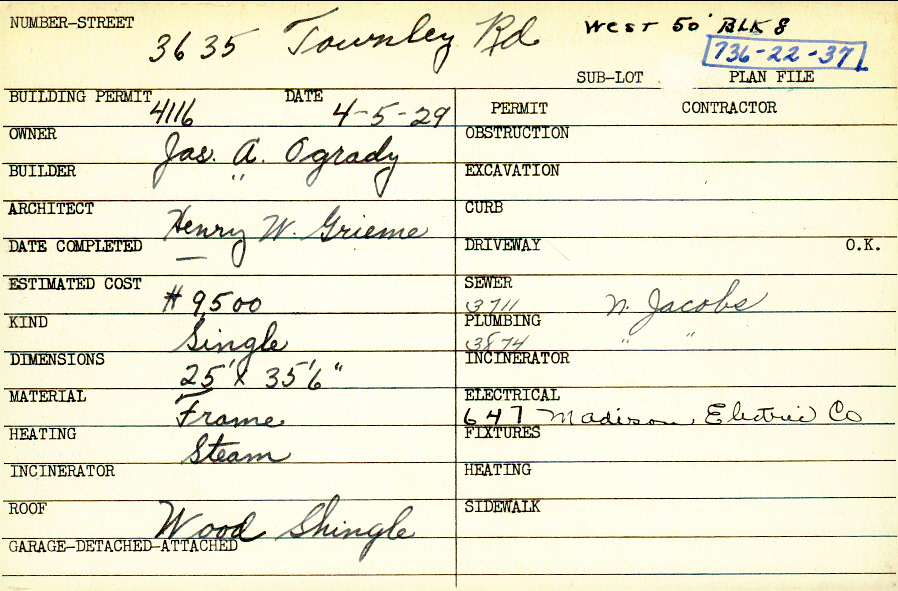 NUMBER-STREET 3635 Townley Rd West 50' BLK 8
736-22-37
SUB-LOT PLAN FILE
BUILDING PERMIT 4116 DATE 4-5-29
OWNER Jas. A. Ogrady
BUILDER "
ARCHITECT Henry W. Grieme
DATE COMPLETED —
ESTIMATED COST $9500
KIND Single
DIMENSIONS 25' x 35'6"
MATERIAL Frame
HEATING Steam
INCINERATOR
ROOF Wood Shingle
GARAGE-DETACHED-ATTACHED
PERMIT CONTRACTOR
OBSTRUCTION
EXCAVATION
CURB
DRIVEWAY O.K.
SEWER 13711 N. Jacobs
PLUMBING 13874 " "
INCINERATOR
ELECTRICAL 647 Madison Electric Co
FIXTURES
HEATING
SIDEWALK